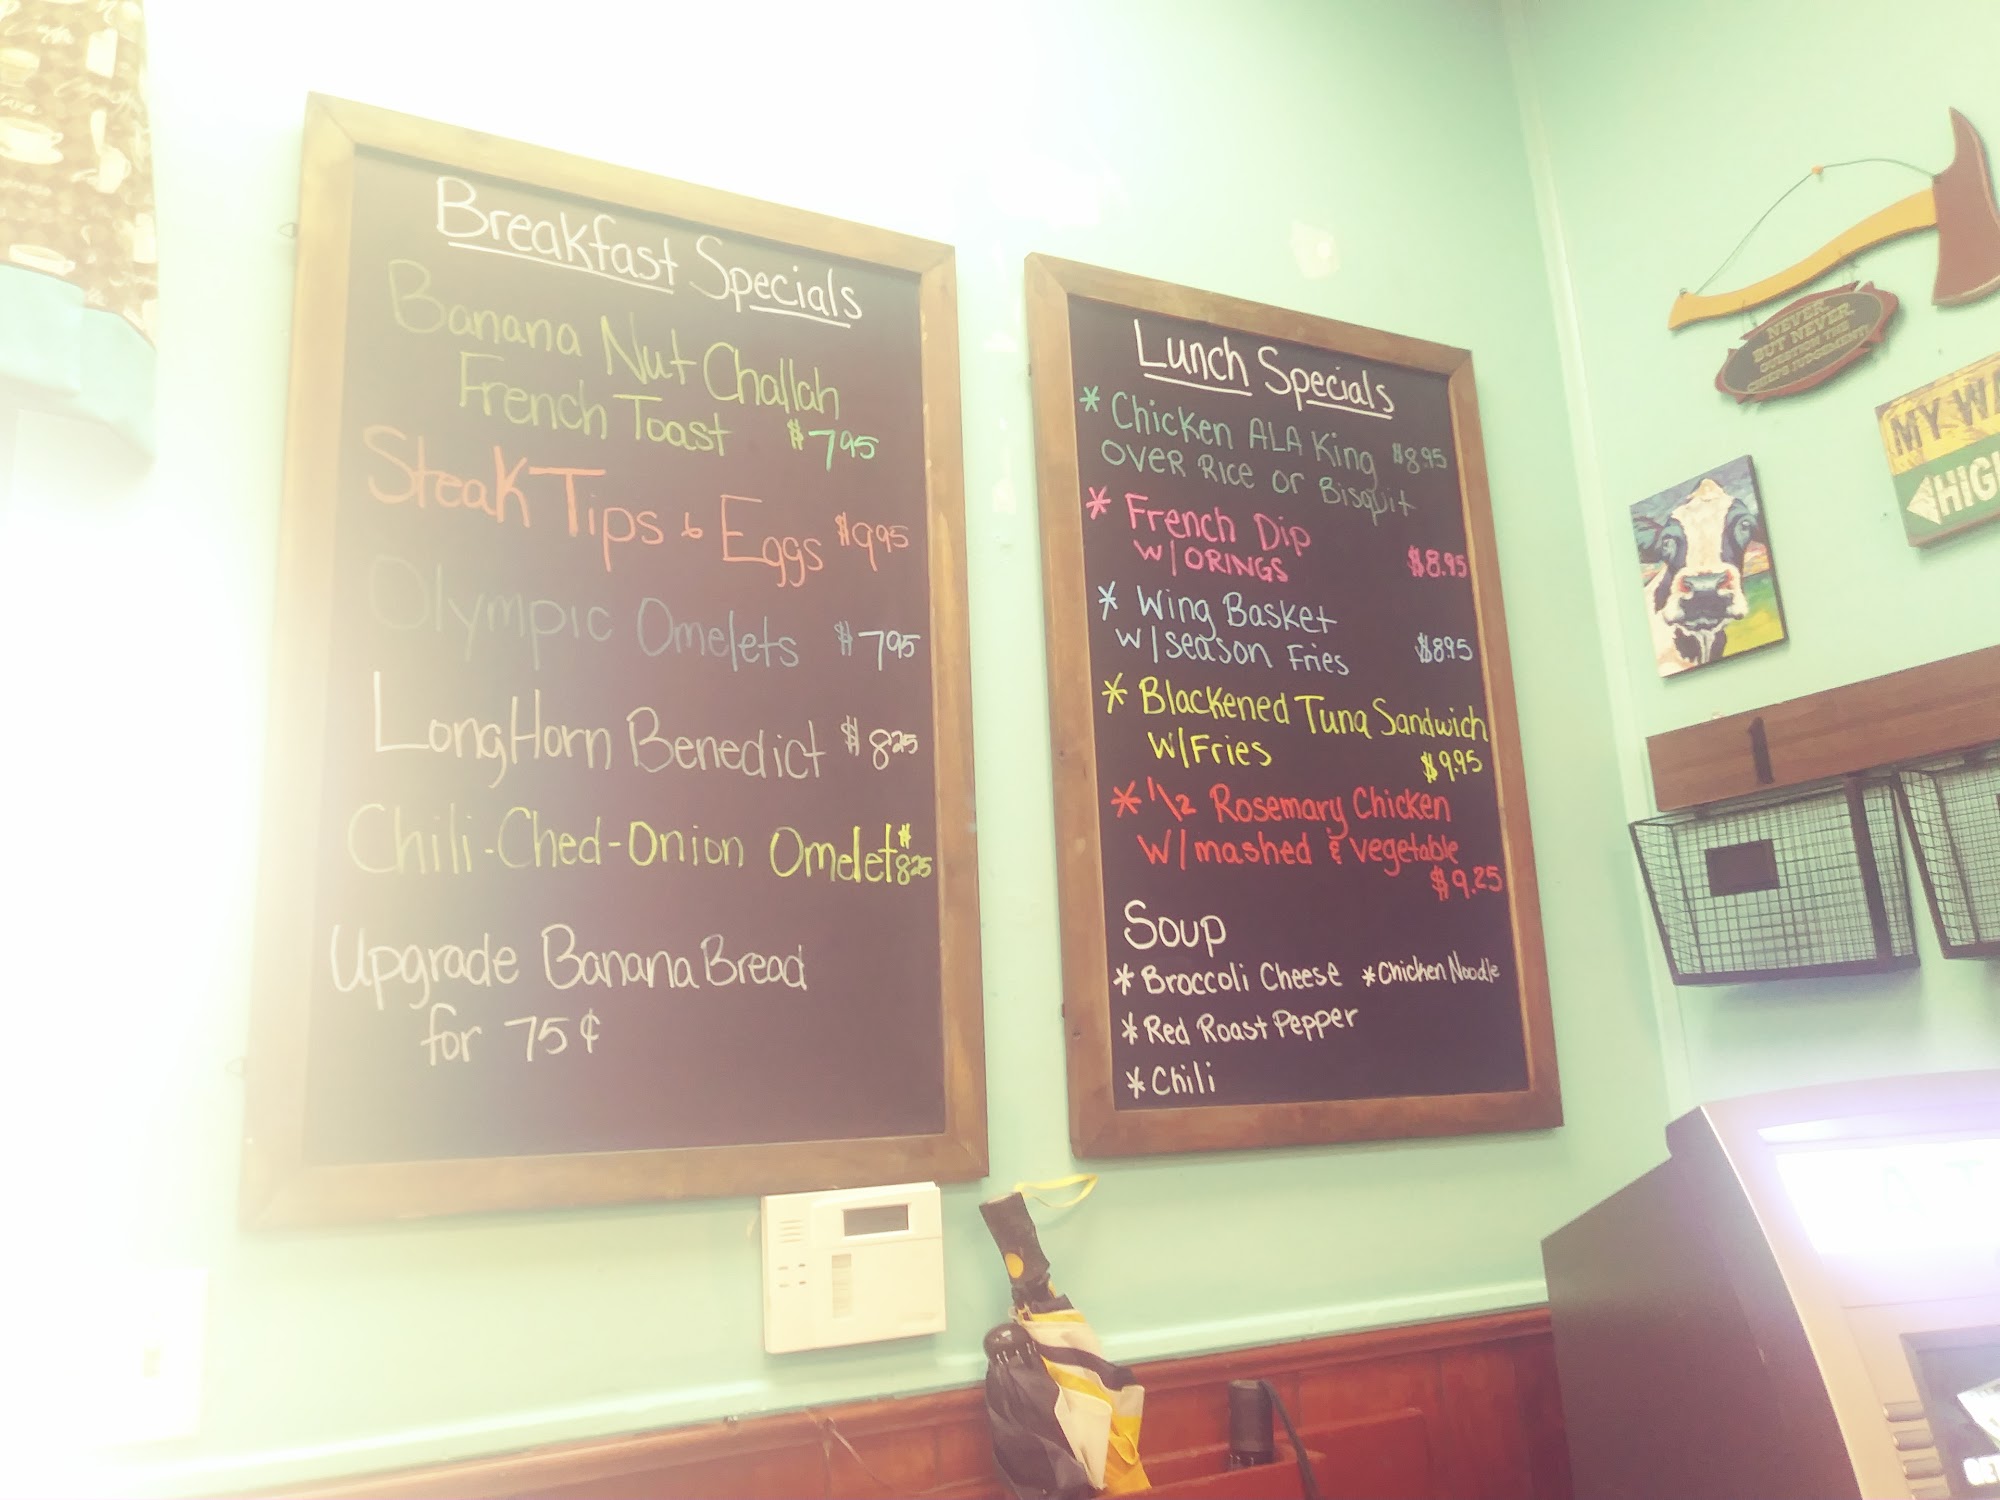 Breakfast Specials
Banana Nut Challah
French Toast $7.95
Steak Tips & Eggs $9.95
Olympic Omelets $7.95
LongHorn Benedict $8.25
Chili-Ched-Onion Omelet $8.25
Upgrade Banana Bread
for 75¢
Lunch Specials
* Chicken ALA King $8.95
OVER RICE or Bisquit
* French Dip
W/ORINGS $8.95
* Wing Basket
W/season Fries $8.95
* Blackened Tuna Sandwich
W/Fries $9.95
* 1/2 Rosemary Chicken
W/mashed & vegetable
$9.25
Soup
* Broccoli Cheese * Chicken Noodle
* Red Roast Pepper
* Chili
NEVER,
BUT NEVER,
QUESTION THE
CHEF'S JUDGEMENT!
MY WA
HIG
1